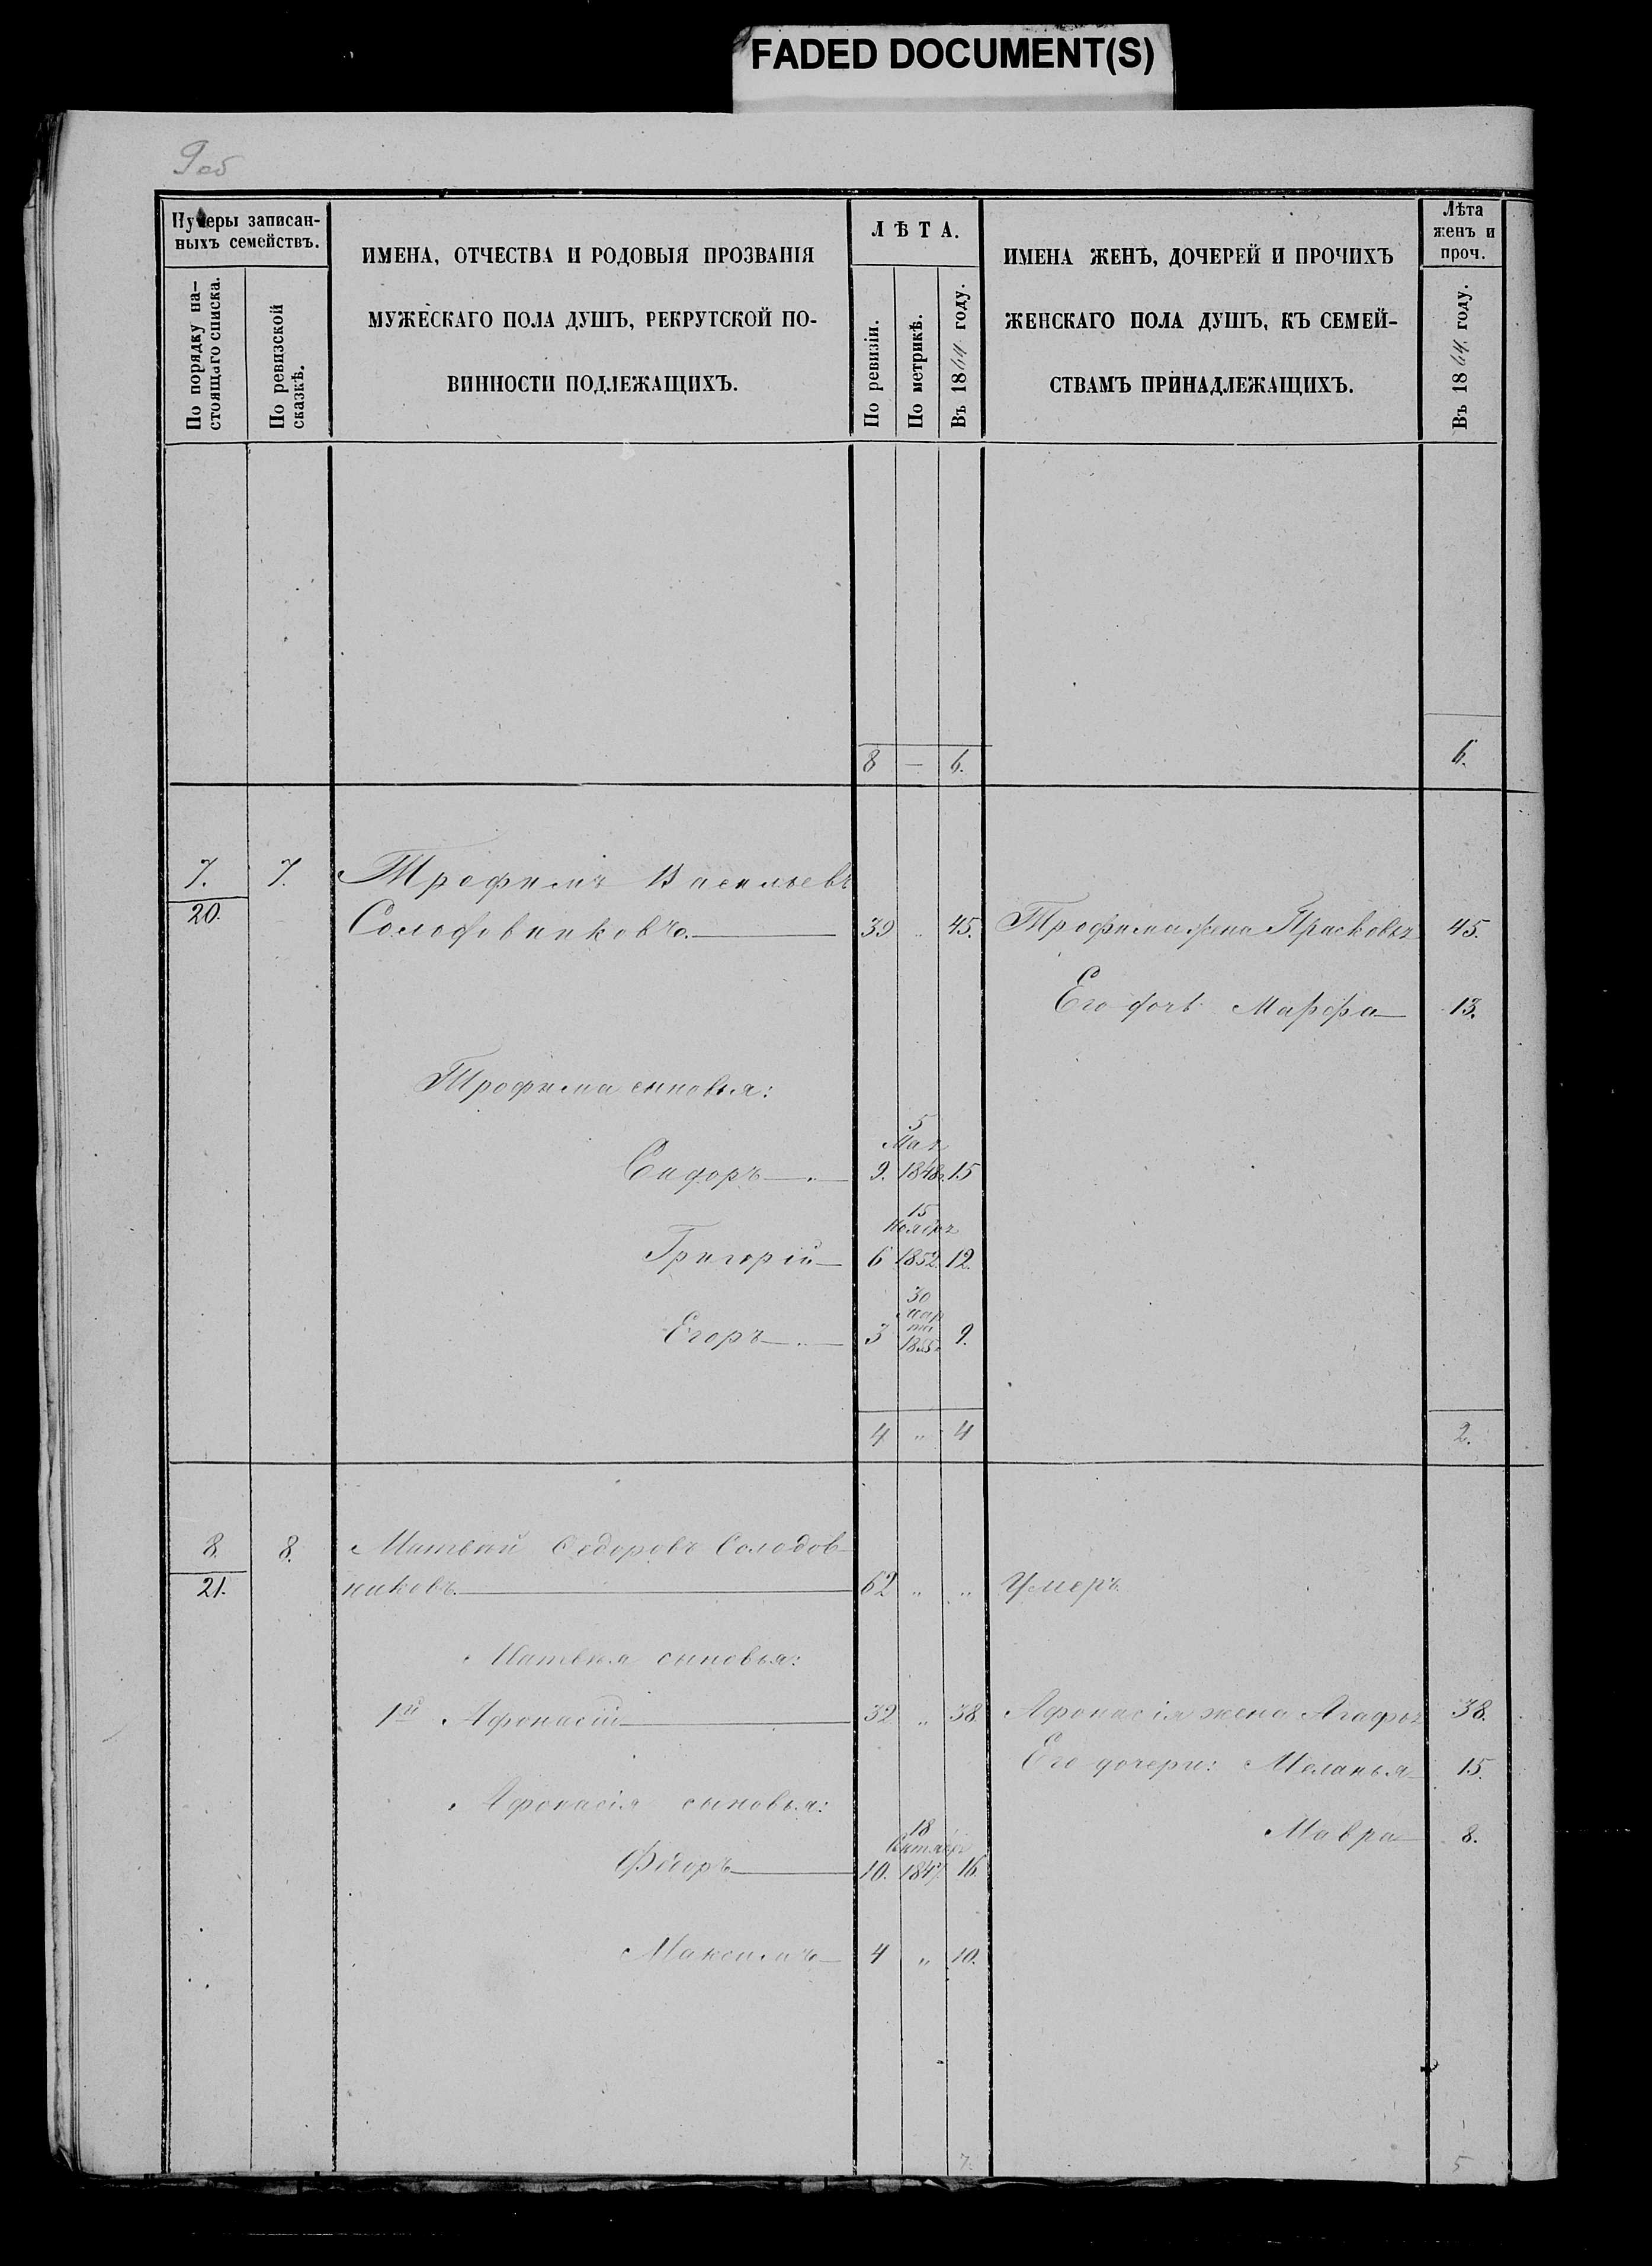 FADED DOCUMENT(S)
9об
Нумеры записан-
ныхъ семействъ.
По порядку на-
стоящаго списка.
По ревизской
сказкѣ.
ИМЕНА, ОТЧЕСТВА И РОДОВЫЯ ПРОЗВАНІЯ
МУЖЕСКАГО ПОЛА ДУШЪ, РЕКРУТСКОЙ ПО-
ВИННОСТИ ПОДЛЕЖАЩИХЪ.
ЛѢТА.
По ревизіи.
По метрикѣ.
Въ 1864 году.
ИМЕНА ЖЕНЪ, ДОЧЕРЕЙ И ПРОЧИХЪ
ЖЕНСКАГО ПОЛА ДУШЪ, КЪ СЕМЕЙ-
СТВАМЪ ПРИНАДЛЕЖАЩИХЪ.
Лѣта
женъ и
проч.
Въ 1864 году.
8 — 6. 6.
7. 7. Трофимъ Васильевъ
20. Солодовниковъ. 39 „ 45. Трофима жена Прасковья 45.
Его дочь Марфа 13.
Трофима сыновья:
5
Мая
Сидоръ 9. 1848 15
15
Ноября
Григорій 6 1852 12.
30
Мар
та
Егоръ 3 1855 9.
4 „ 4 2.
8. 8. Матвѣй Ѳедоровъ Солодов
21. никовъ. 62 „ „ Умеръ.
Матвѣя сыновья:
1й Афонасій 32 „ 38. Афонасія жена Агафья 38.
Его дочери: Меланья 15.
Афонасія сыновья:
Мавра 8.
18
Октября
Фёдоръ 10. 1847 16.
Максимъ 4 „ 10.
7. 5